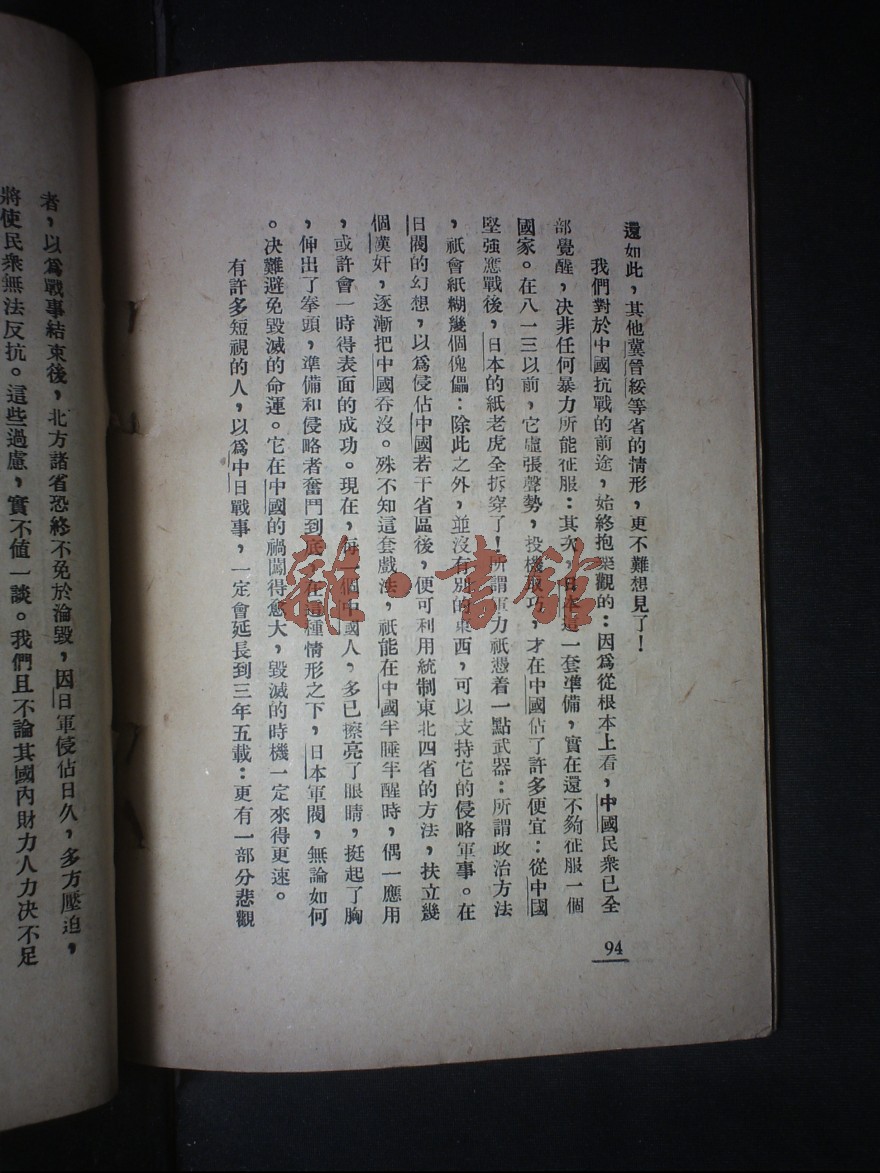 還如此，其他冀晉綏等省的情形，更不難想見了！
我們對於中國抗戰的前途，始終抱樂觀的：因爲從根本上看，中國民衆已全
部覺醒，決非任何暴力所能征服：其次，日本這一套準備，實在還不夠征服一個
國家。在八一三以前，它虛張聲勢，投機取巧，才在中國佔了許多便宜：從中國
堅強應戰後，日本的紙老虎全拆穿了！所謂軍力祇憑着一點武器：所謂政治方法
，祇會紙糊幾個傀儡：除此之外，並沒有別的東西，可以支持它的侵略軍事。在
日閥的幻想，以爲侵佔中國若干省區後，便可利用統制東北四省的方法，扶立幾
個漢奸，逐漸把中國吞沒。殊不知這套戲法，祇能在中國半睡半醒時，偶一應用
，或許會一時得表面的成功。現在，每一個中國人，多已擦亮了眼睛，挺起了胸
，伸出了拳頭，準備和侵略者奮鬥到底，在這種情形之下，日本軍閥，無論如何
。決難避免毀滅的命運。它在中國的禍闖得愈大，毀滅的時機一定來得更速。
有許多短視的人，以爲中日戰事，一定會延長到三年五載：更有一部分悲觀
94
者，以爲戰事結束後，北方諸省恐終不免於淪毀，因日軍侵佔日久，多方壓迫，
將使民衆無法反抗。這些過慮，實不值一談。我們且不論其國內財力人力決不足
雜·書館